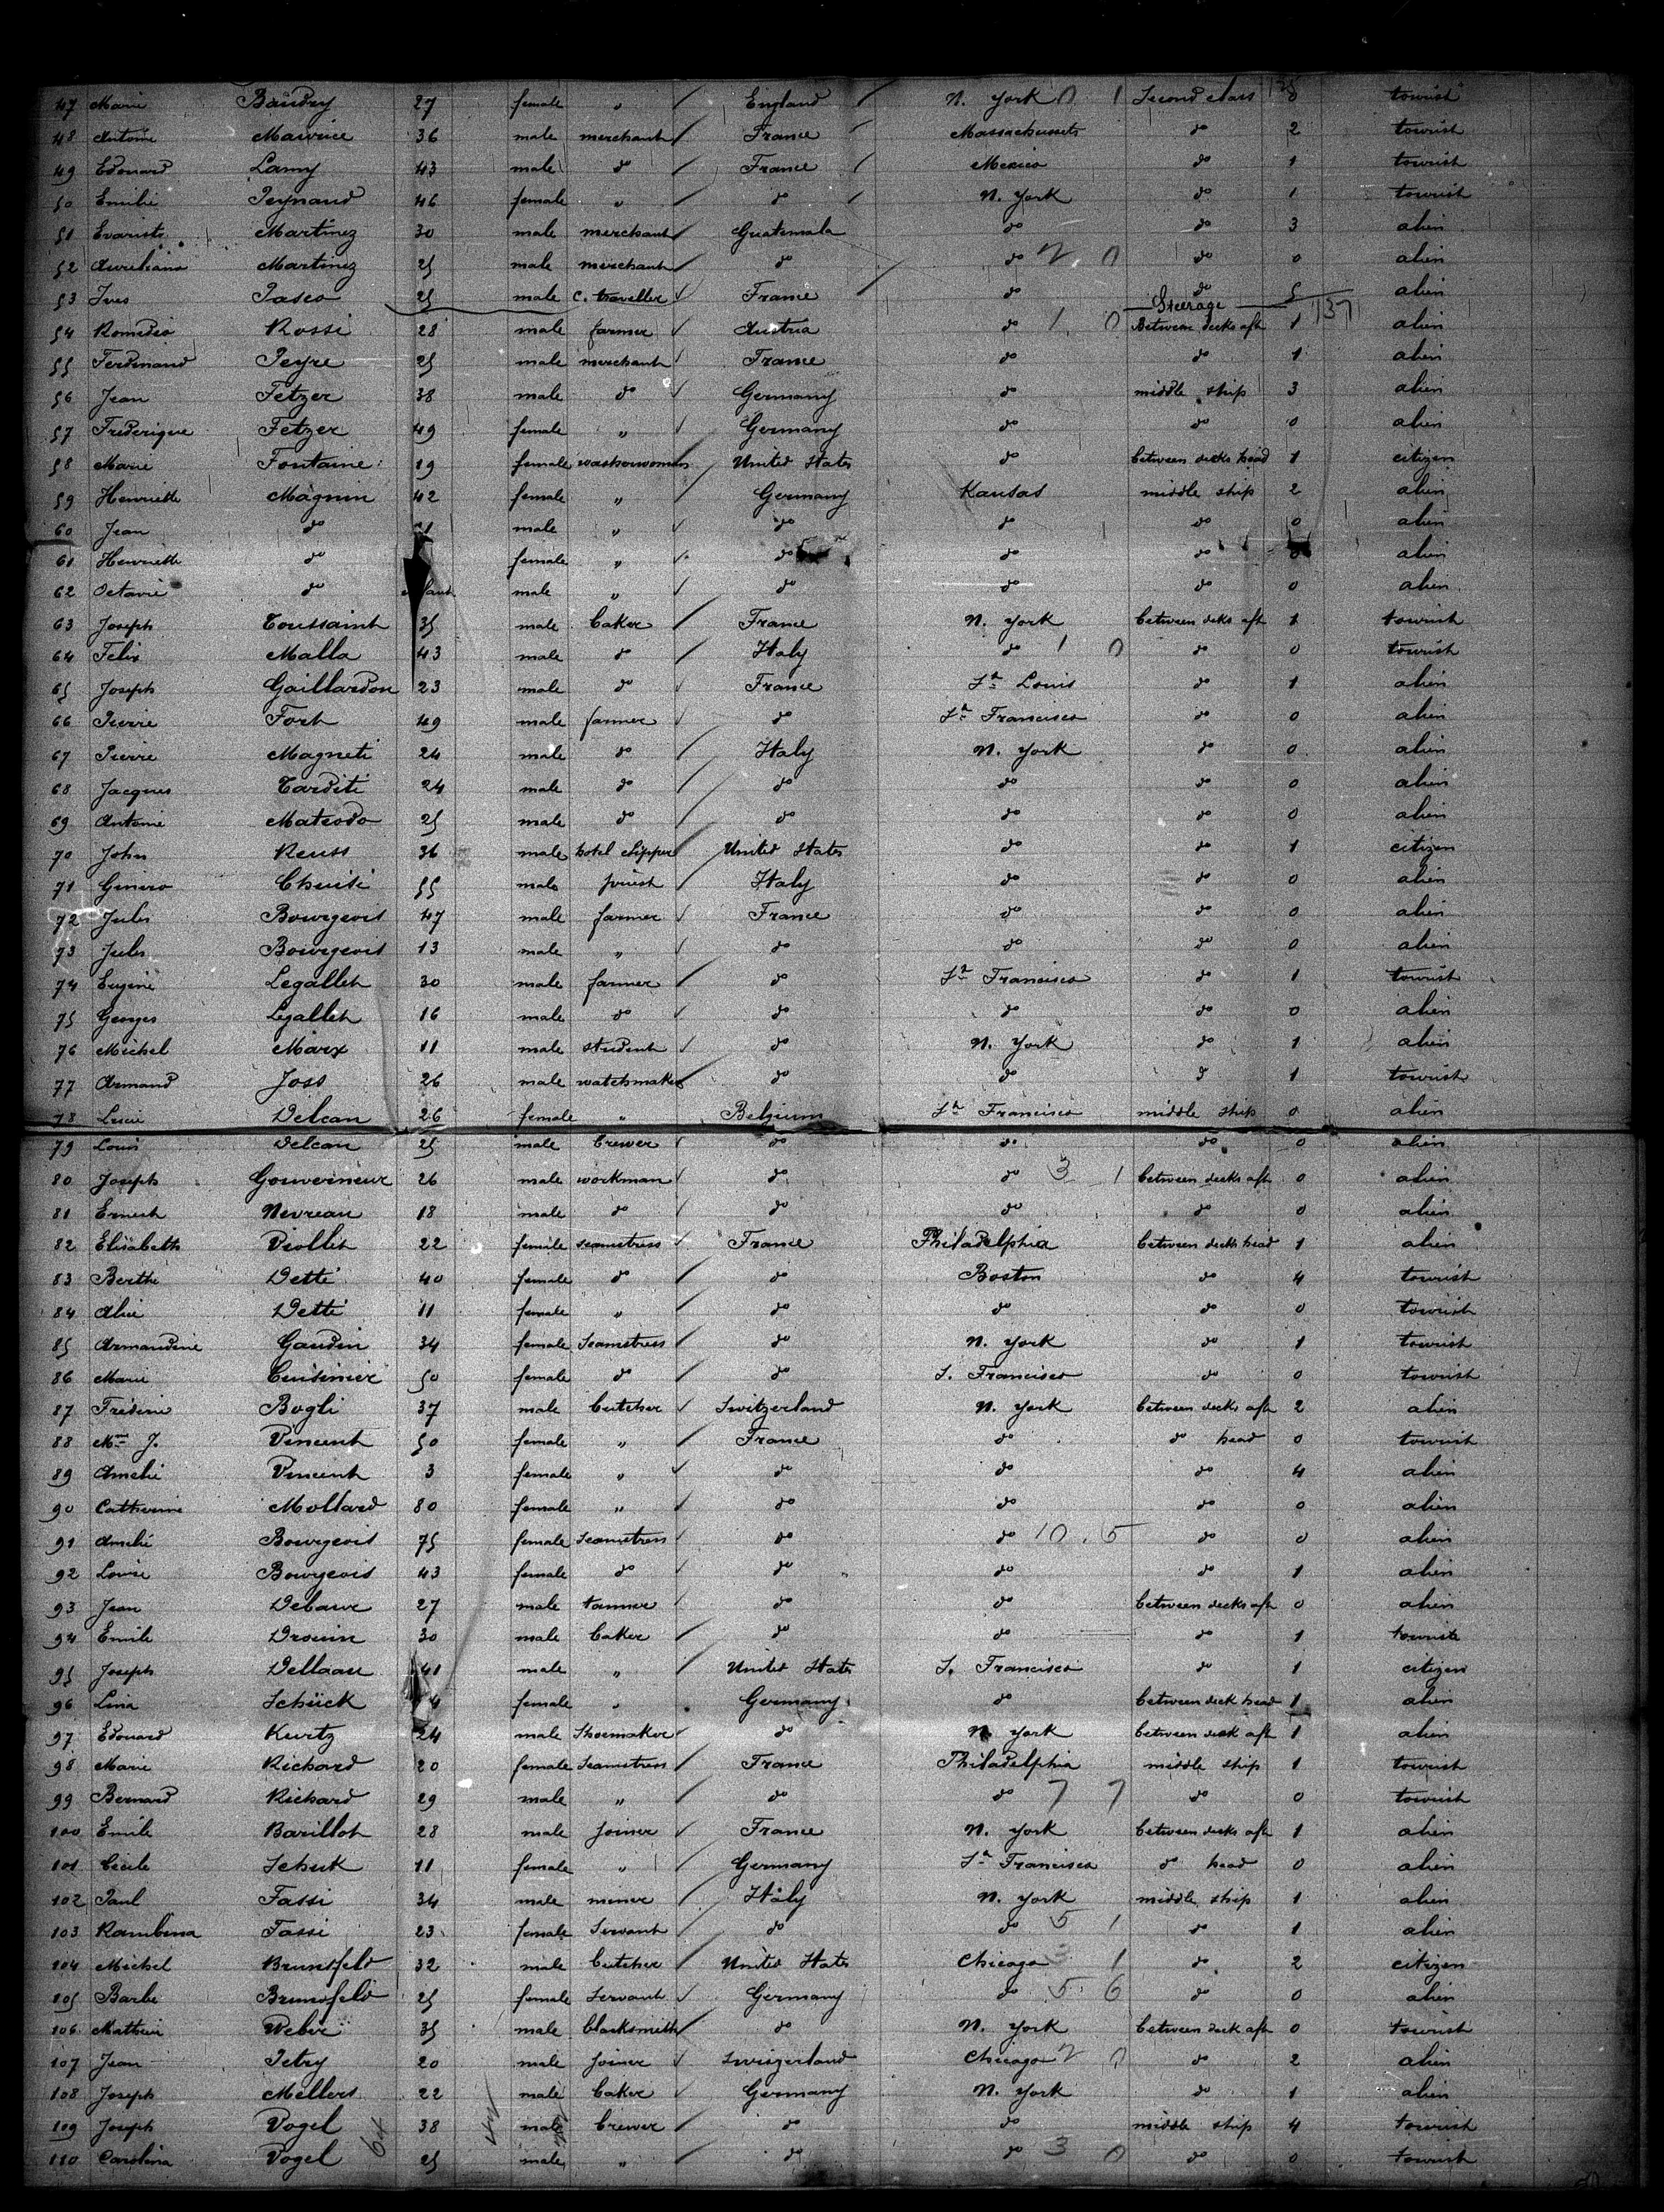 47 Marie Baudry 27 female " England N. York 0 1 Second class 0 tourist
48 Antoine Maurice 36 male merchant France Massachussets do 2 tourist
49 Edouard Lamy 43 male do France Mexico do 1 tourist
50 Emilie Peynaud 46 female " do N. York do 1 tourist
51 Evariste Martinez 30 male merchant Guatemala do do 3 alien
52 Aureliano Martinez 25 male merchant do do 2 0 do 0 alien
53 Ives Pasco 25 male c. traveller France do do 5 alien
Steerage 137
54 Romedio Rossi 28 male farmer Austria do 1 0 Between decks aft 1 alien
55 Ferdinand Peyre 25 male merchant France do do 1 alien
56 Jean Fetzer 38 male do Germany do middle ship 3 alien
57 Frederique Fetzer 49 female " Germany do do 0 alien
58 Marie Fontaine 19 female washerwoman United States do between decks head 1 citizen
59 Henriette Magnin 42 female " Germany Kansas middle ship 2 alien
60 Jean do male " do do do 0 alien
61 Henriette do female " do do do 0 alien
62 Octavie do male " do do do 0 alien
63 Joseph Toussaint 35 male baker France N. York between decks aft 1 tourist
64 Felix Malla 43 male do Italy do 1 0 do 0 tourist
65 Joseph Gaillardon 23 male do France St Louis do 1 alien
66 Pierre Fort 49 male farmer do Sn Francisco do 0 alien
67 Pierre Magneti 24 male do Italy N. York do 0 alien
68 Jacques Tarditi 24 male do do do do 0 alien
69 Antoine Matsodo 25 male do do do do 0 alien
70 John Reuss 36 male hotel United States do do 1 citizen
71 Ginero Chuisi 55 male priest Italy do do 0 alien
72 Jules Bourgeois 47 male farmer France do do 0 alien
73 Jules Bourgeois 13 male " do do do 0 alien
74 Eugène Legallet 30 male farmer do Sn Francisco do 1 tourist
75 Georges Legallet 16 male do do do do 0 alien
76 Michel Marx 11 male student do N. York do 1 alien
77 Armand Joss 26 male watchmaker do do d 1 tourist
78 Lucie Delcan 26 female " Belgium Sn Francisco middle ship 0 alien
79 Louis Delcan 25 male brewer do do do 0 alien
80 Joseph Gouverneur 26 male workman do do 3 1 between decks aft 0 alien
81 Ernest Nevreau 18 male do do do do 0 alien
82 Elisabeth Viollet 22 female seamstress France Philadelphia between decks head 1 alien
83 Berthe Detti 40 female do do Boston do 4 tourist
84 Alice Detti 11 female " do do do 0 tourist
85 Armandine Gaudin 34 female Seamstress do N. York do 1 tourist
86 Marie Cuisinier 50 female do do S. Francisco do 0 tourist
87 Frédéric Bogli 37 male butcher Switzerland N. York between decks aft 2 alien
88 Me J. Vincent 50 female " France do do head 0 tourist
89 Amelie Vincent 3 female " do do do 4 alien
90 Catherine Mollard 80 female " do do do 0 alien
91 Amelie Bourgeois 75 female Seamstress do do 10.5 do 0 alien
92 Louise Bourgeois 43 female do do do do 1 alien
93 Jean Debauve 27 male tanner do do between decks aft 0 alien
94 Emile Drouin 30 male baker do do do 1 touriste
95 Joseph Dellaau 41 male " United States S. Francisco do 1 citizen
96 Lina Schück 4 female " Germany do between deck head 1 alien
97 Edouard Kurtz 24 male Shoemaker do N. York between deck aft 1 alien
98 Marie Richard 20 female Seamstress France Philadelphia middle ship 1 tourist
99 Bernard Richard 29 male " do do 7 7 do 0 tourist
100 Emile Barillot 28 male joiner France N. York between decks aft 1 alien
101 Cécile Schuk 11 female " Germany Sn Francisco do head 0 alien
102 Paul Fassi 34 male miner Italy N. York middle ship 1 alien
103 Rambina Fassi 23 female Servant do do 5 1 do 1 alien
104 Michel Brunsfeld 32 male butcher United States Chicago 3 1 do 2 citizen
105 Barbe Brunsfeld 25 female Servant Germany do 5 6 do 0 alien
106 Mathieu Weber 35 male blacksmith do N. York between deck aft 0 tourist
107 Jean Petry 20 male joiner Swizgerland Chicago 2 0 do 2 alien
108 Joseph Mellers 22 male baker Germany N. York do 1 alien
109 Joseph Vogel 38 male brewer do do middle ship 4 tourist
110 Carolina Vogel 25 male " do do 3 0 do 0 tourist
64